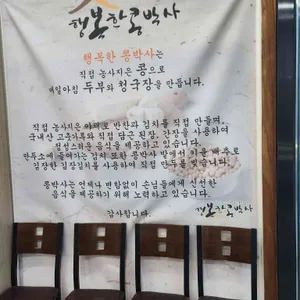 행복한콩박사
행복한 콩박사는
직접 농사지은 콩으로
매일아침 두부와 청국장을 만듭니다.
직접 농사지은 야채로 반찬과 김치를 직접 만들며,
국내산 고춧가루와 직접 담근 된장, 간장을 사용하여
정성스러운 음식을 제공하고 있습니다.
만두소에 들어가는 김치 또한 콩박사 밭에서 키운 배추로
김장한 김장김치를 사용하여 직접 만두를 빚습니다.
콩박사는 언제나 변함없이 손님들에게 신선한
음식을 제공하기 위해 노력하고 있습니다.
감사합니다.
행복한콩박사